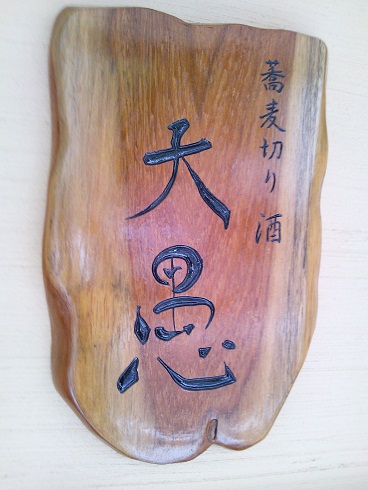 蕎麦切り 酒
大愚